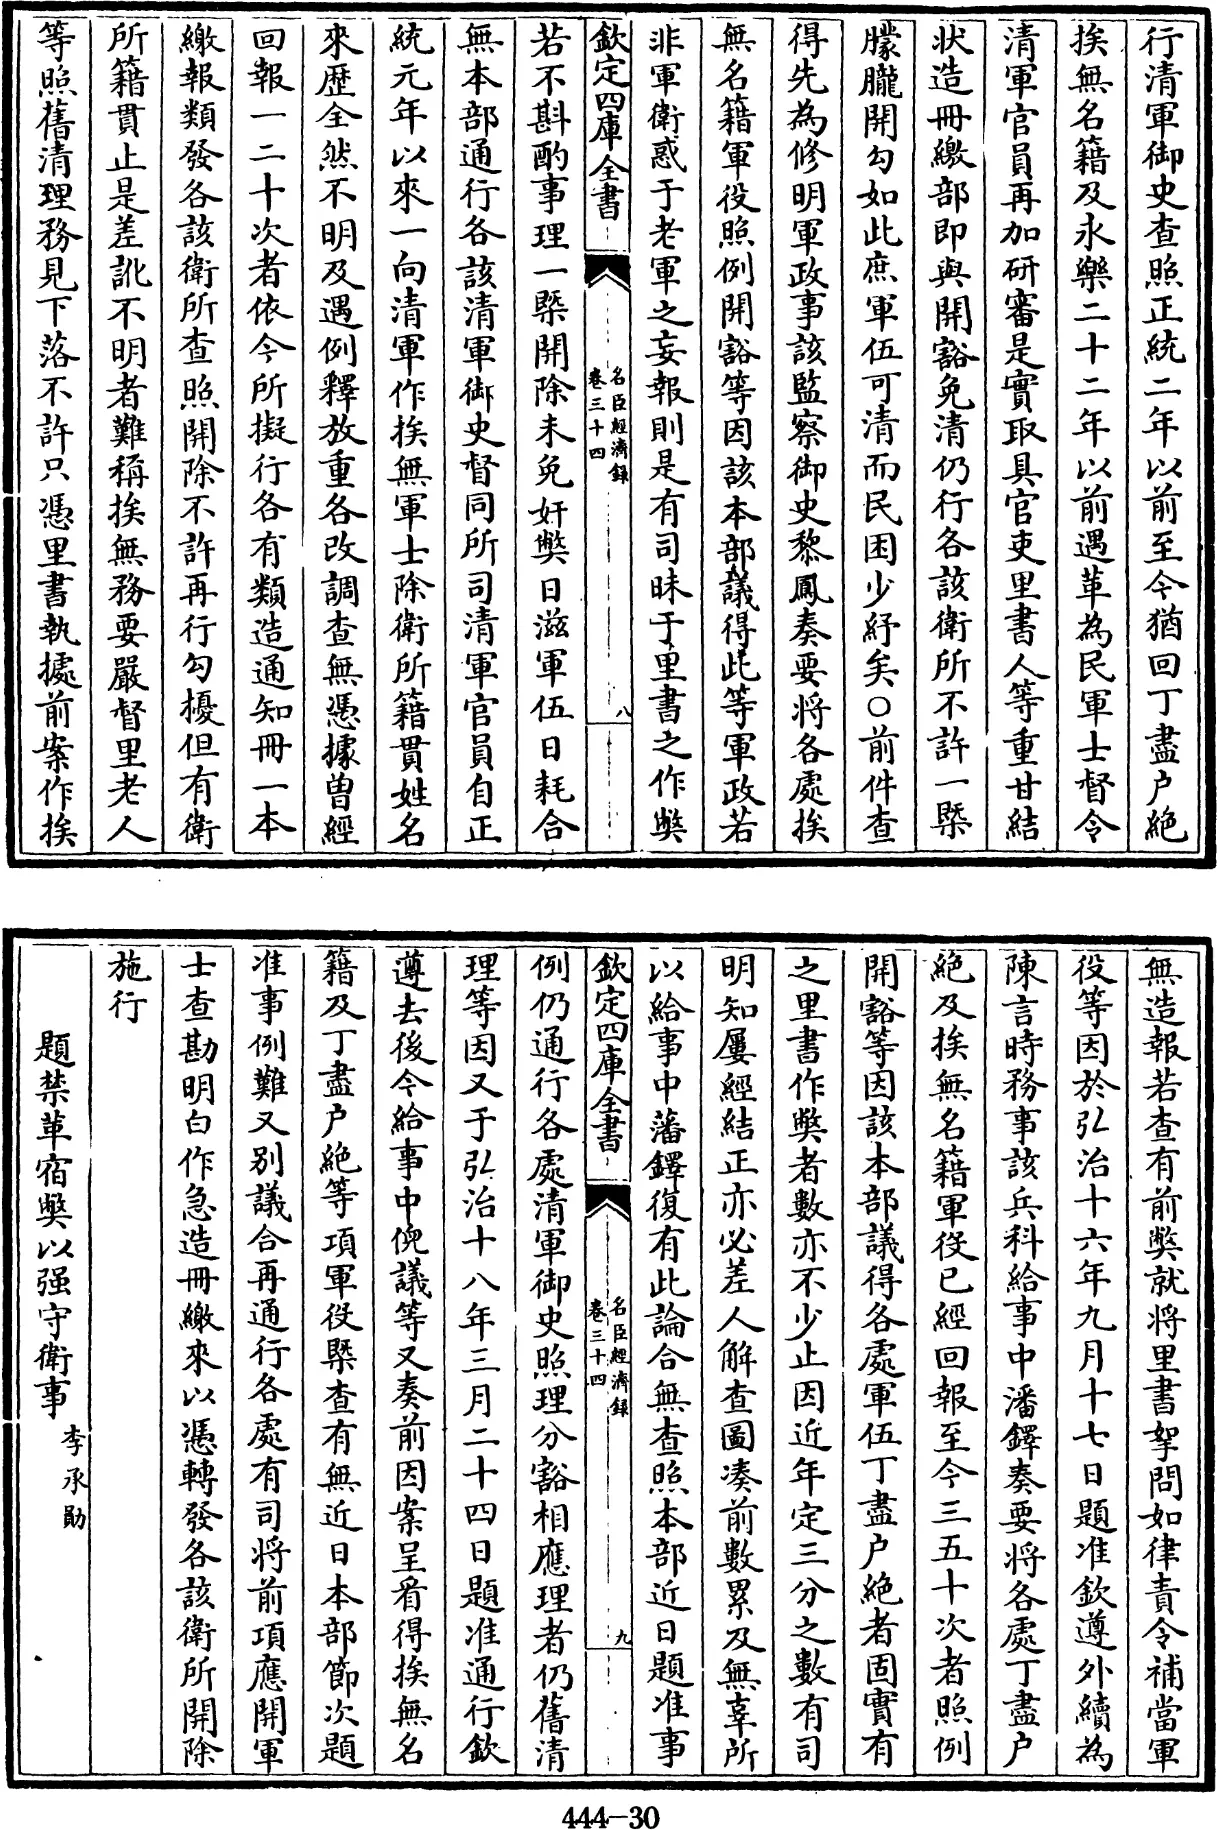 行清軍御史查照正統二年以前至今猶回丁盡户絶
挨無名籍及永樂二十二年以前遇革為民軍士督令
清軍官員再加研審是實取具官吏里書人等重甘結
狀造冊繳部即與開豁免清仍行各該衛所不許一槩
朦朧開勾如此庶軍伍可清而民困少紓矣○前件查
得先為修明軍政事該監察御史黎鳳奏要將各處挨
無名籍軍役照例開豁等因該本部議得此等軍政若
非軍衛惑于老軍之妄報則是有司昧于里書之作獘
欽定四庫全書
名臣經濟録
卷三十四
八
若不斟酌事理一槩開除未免奸獘日滋軍伍日耗合
無本部通行各該清軍御史督同所司清軍官員自正
統元年以來一向清軍作挨無軍士除衛所籍貫姓名
來歷全然不明及遇例釋放重各改調查無憑據曾經
回報一二十次者依今所擬行各有類造通知冊一本
繳報類發各該衛所查照開除不許再行勾擾但有衛
所籍貫止是差訛不明者難稱挨無務要嚴督里老人
等照舊清理務見下落不許只憑里書執據前案作挨
無造報若查有前獘就將里書拏問如律責令補當軍
役等因於弘治十六年九月十七日題准欽遵外續為
陳言時務事該兵科給事中潘鐸奏要將各處丁盡户
絶及挨無名籍軍役已經回報至今三五十次者照例
開豁等因該本部議得各處軍伍丁盡户絶者固實有
之里書作獘者數亦不少止因近年定三分之數有司
明知屢經結正亦必差人解查圖凑前數累及無辜所
以給事中藩鐸復有此論合無查照本部近日題准事
欽定四庫全書
名臣經濟録
卷三十四
九
例仍通行各處清軍御史照理分豁相應理者仍舊清
理等因又于弘治十八年三月二十四日題准通行欽
遵去後今給事中倪議等又奏前因案呈看得挨無名
籍及丁盡户絶等項軍役槩查有無近日本部節次題
准事例難又別議合再通行各處有司將前項應開軍
士查勘明白作急造冊繳來以憑轉發各該衛所開除
施行
題禁革宿獘以强守衛事
李承勛
444-30